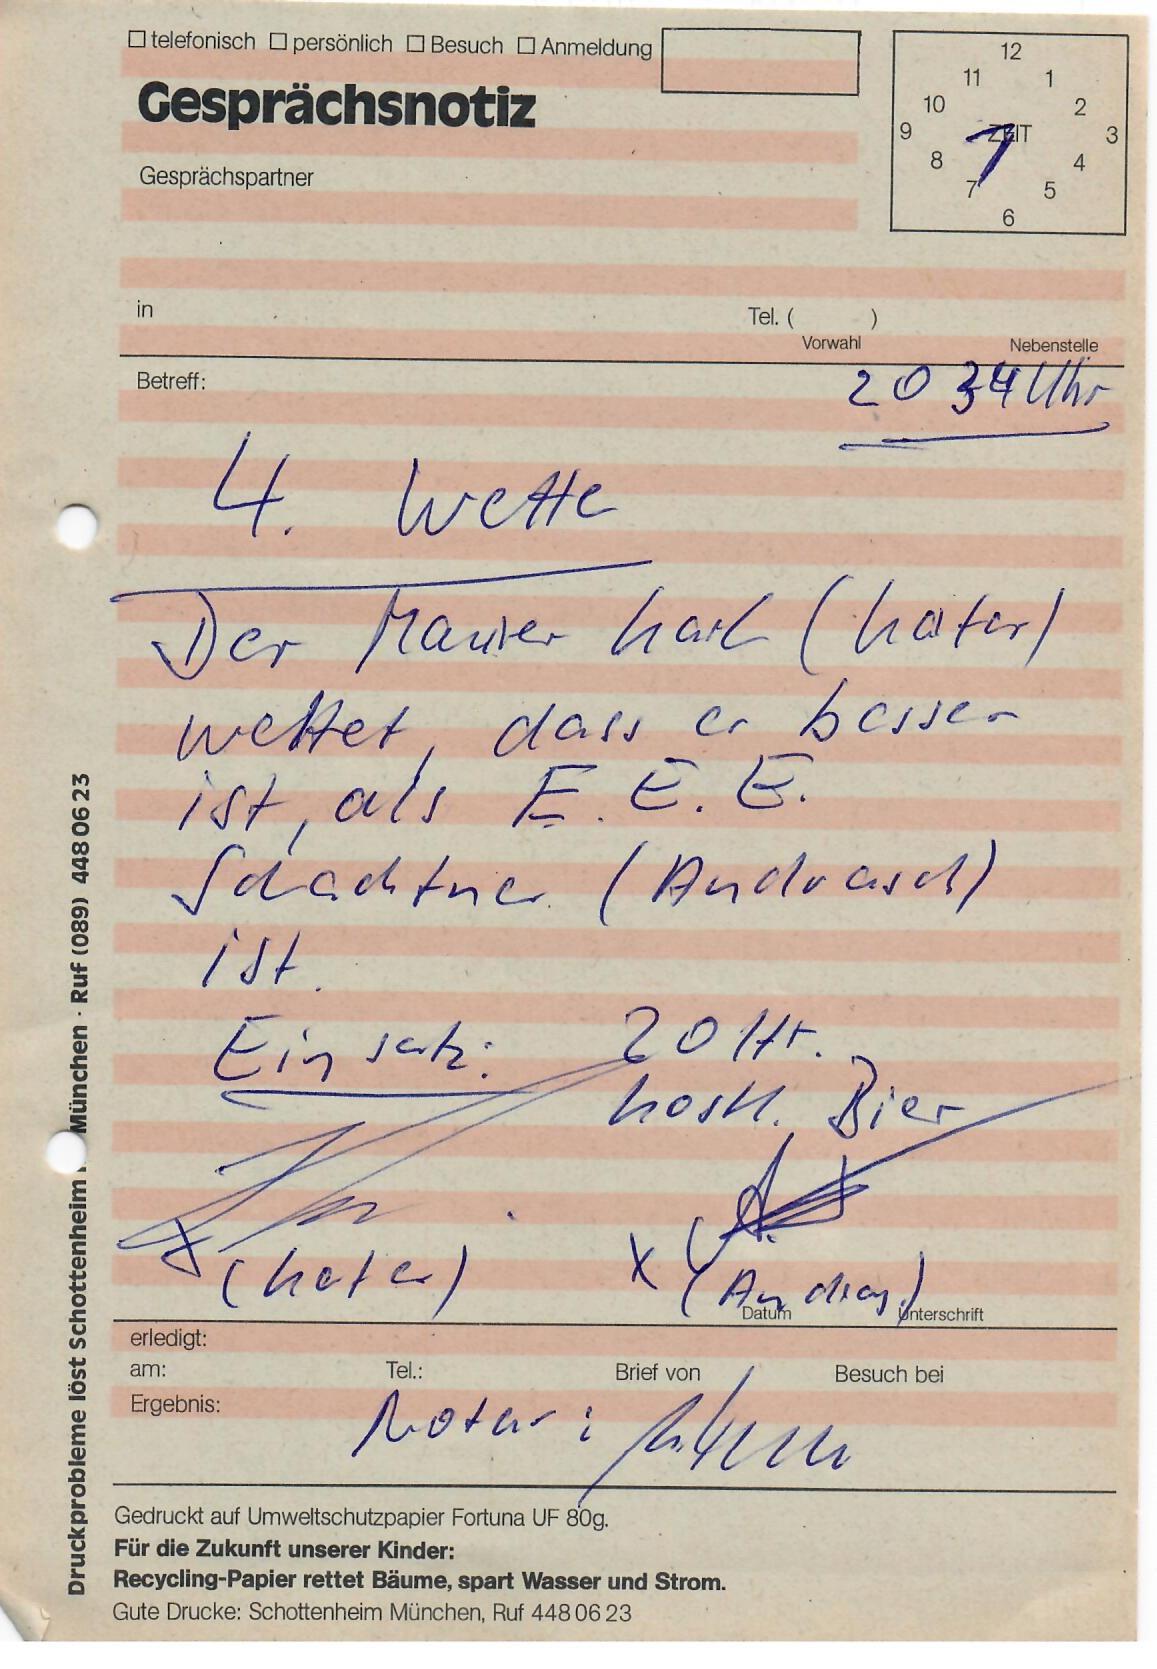 ☐ telefonisch ☐ persönlich ☐ Besuch ☐ Anmeldung
Gesprächsnotiz
Gesprächspartner
12
11 1
10 2
9 ZEIT 3
8 4
7 5
6
1
in
Tel. ( )
Vorwahl
Nebenstelle
Betreff:
20 34 Uhr
4. Wette
Der Maurer Karl (Kater)
wettet, dass er besser
ist, als E. E. E.
Schachtner (Andrasch)
ist.
Einsatz: 20 Htr.
kostl. Bier
x
(Kater) x (Andrasch)
Datum Unterschrift
erledigt:
am: Tel.: Brief von Besuch bei
Ergebnis:
Notar:
Gedruckt auf Umweltschutzpapier Fortuna UF 80g.
Für die Zukunft unserer Kinder:
Recycling-Papier rettet Bäume, spart Wasser und Strom.
Gute Drucke: Schottenheim München, Ruf 448 06 23
Druckprobleme löst Schottenheim München · Ruf (089) 448 06 23